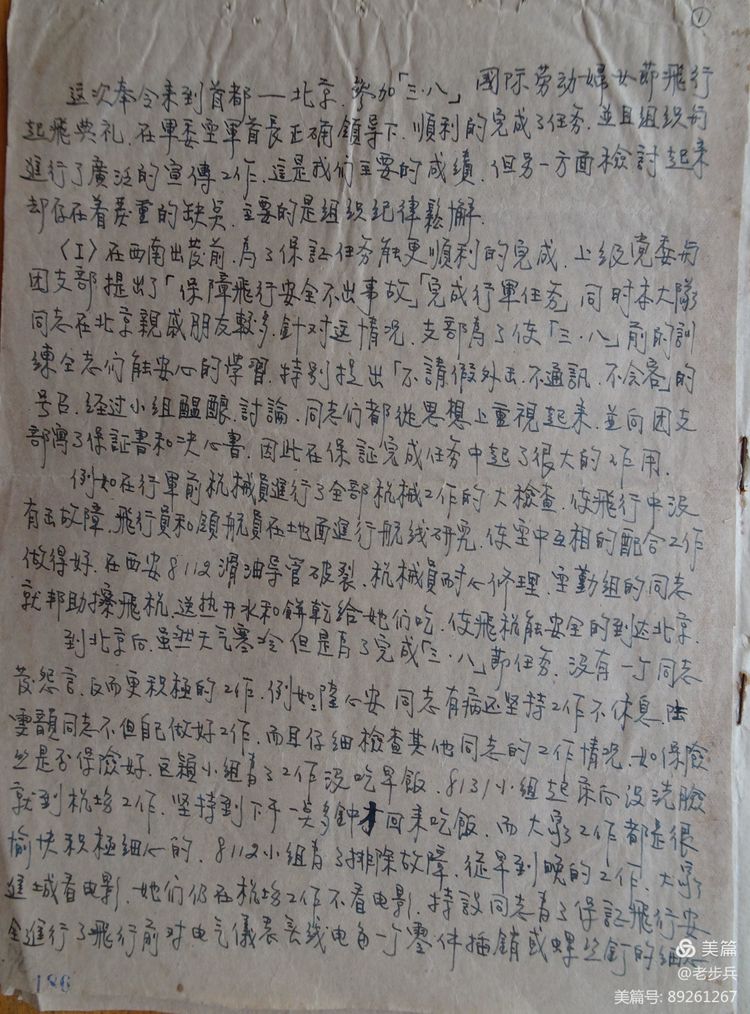 ①
这次奉令来到首都—北京.参加「三.八」国际劳动婦女節飛行
起飛典礼.在軍委空軍首長正确領导下.順利的完成了任务.並且組织和
進行了廣泛的宣傳工作.這是我们主要的成績.但另一方面檢討起来
却存在着嚴重的缺点.主要的是組织紀律鬆懈.
(I)在西南出發前.為了保証任务能更順利的完成.上級党委与
团支部提出了「保障飛行安全不出事故」「完成行軍任务」同时本大隊
同志在北京親戚朋友較多.針对这情况.支部為了使「三.八」前的訓
練全志们能安心的学習.特别提出「不請假外出.不通訊.不会客」的
号召.经过小组醞酿.討論.同志们都從思想上重視起来.並向团支
部寫了保証書和决心書.因此在保証完成任务中起了很大的作用.
例如在行軍前机械員進行了全部机械工作的大檢查.使飛行中没
有出故障.飛行員和領航員在地面進行航线研究.使空中互相的配合工作
做得好.在西安8112滑油导管破裂.机械員耐心修理.空勤组的同志
就邦助擦飛机.送热开水和餅乾给她们吃.使飛机能安全的到达北京.
到北京后.虽然天气寒冷但是為了完成「三.八」節任务.没有一个同志
發怨言.反而更积極的工作.例如:陸心安同志有病还坚持工作不休息.陆
雲韻同志不但自己做好工作.而且仔细檢查其他同志的工作情况.如保險
丝是否保險好.王穎小组為了工作没吃早飯.8131小组起床后没洗臉
就到机埸工作.坚持到下午一点多鈡才回来吃飯.而大家工作都是很
愉快积極细心的.8112小组為了排除故障.從早到晚的工作.大家
進城看电影.她们仍在机埸工作不看电影.特設同志為了保証飛行安
全進行了飛行前对电气儀表無线电每一个零件插銷或螺丝釘的细心
186
美篇
@老步兵
美篇号: 89261267